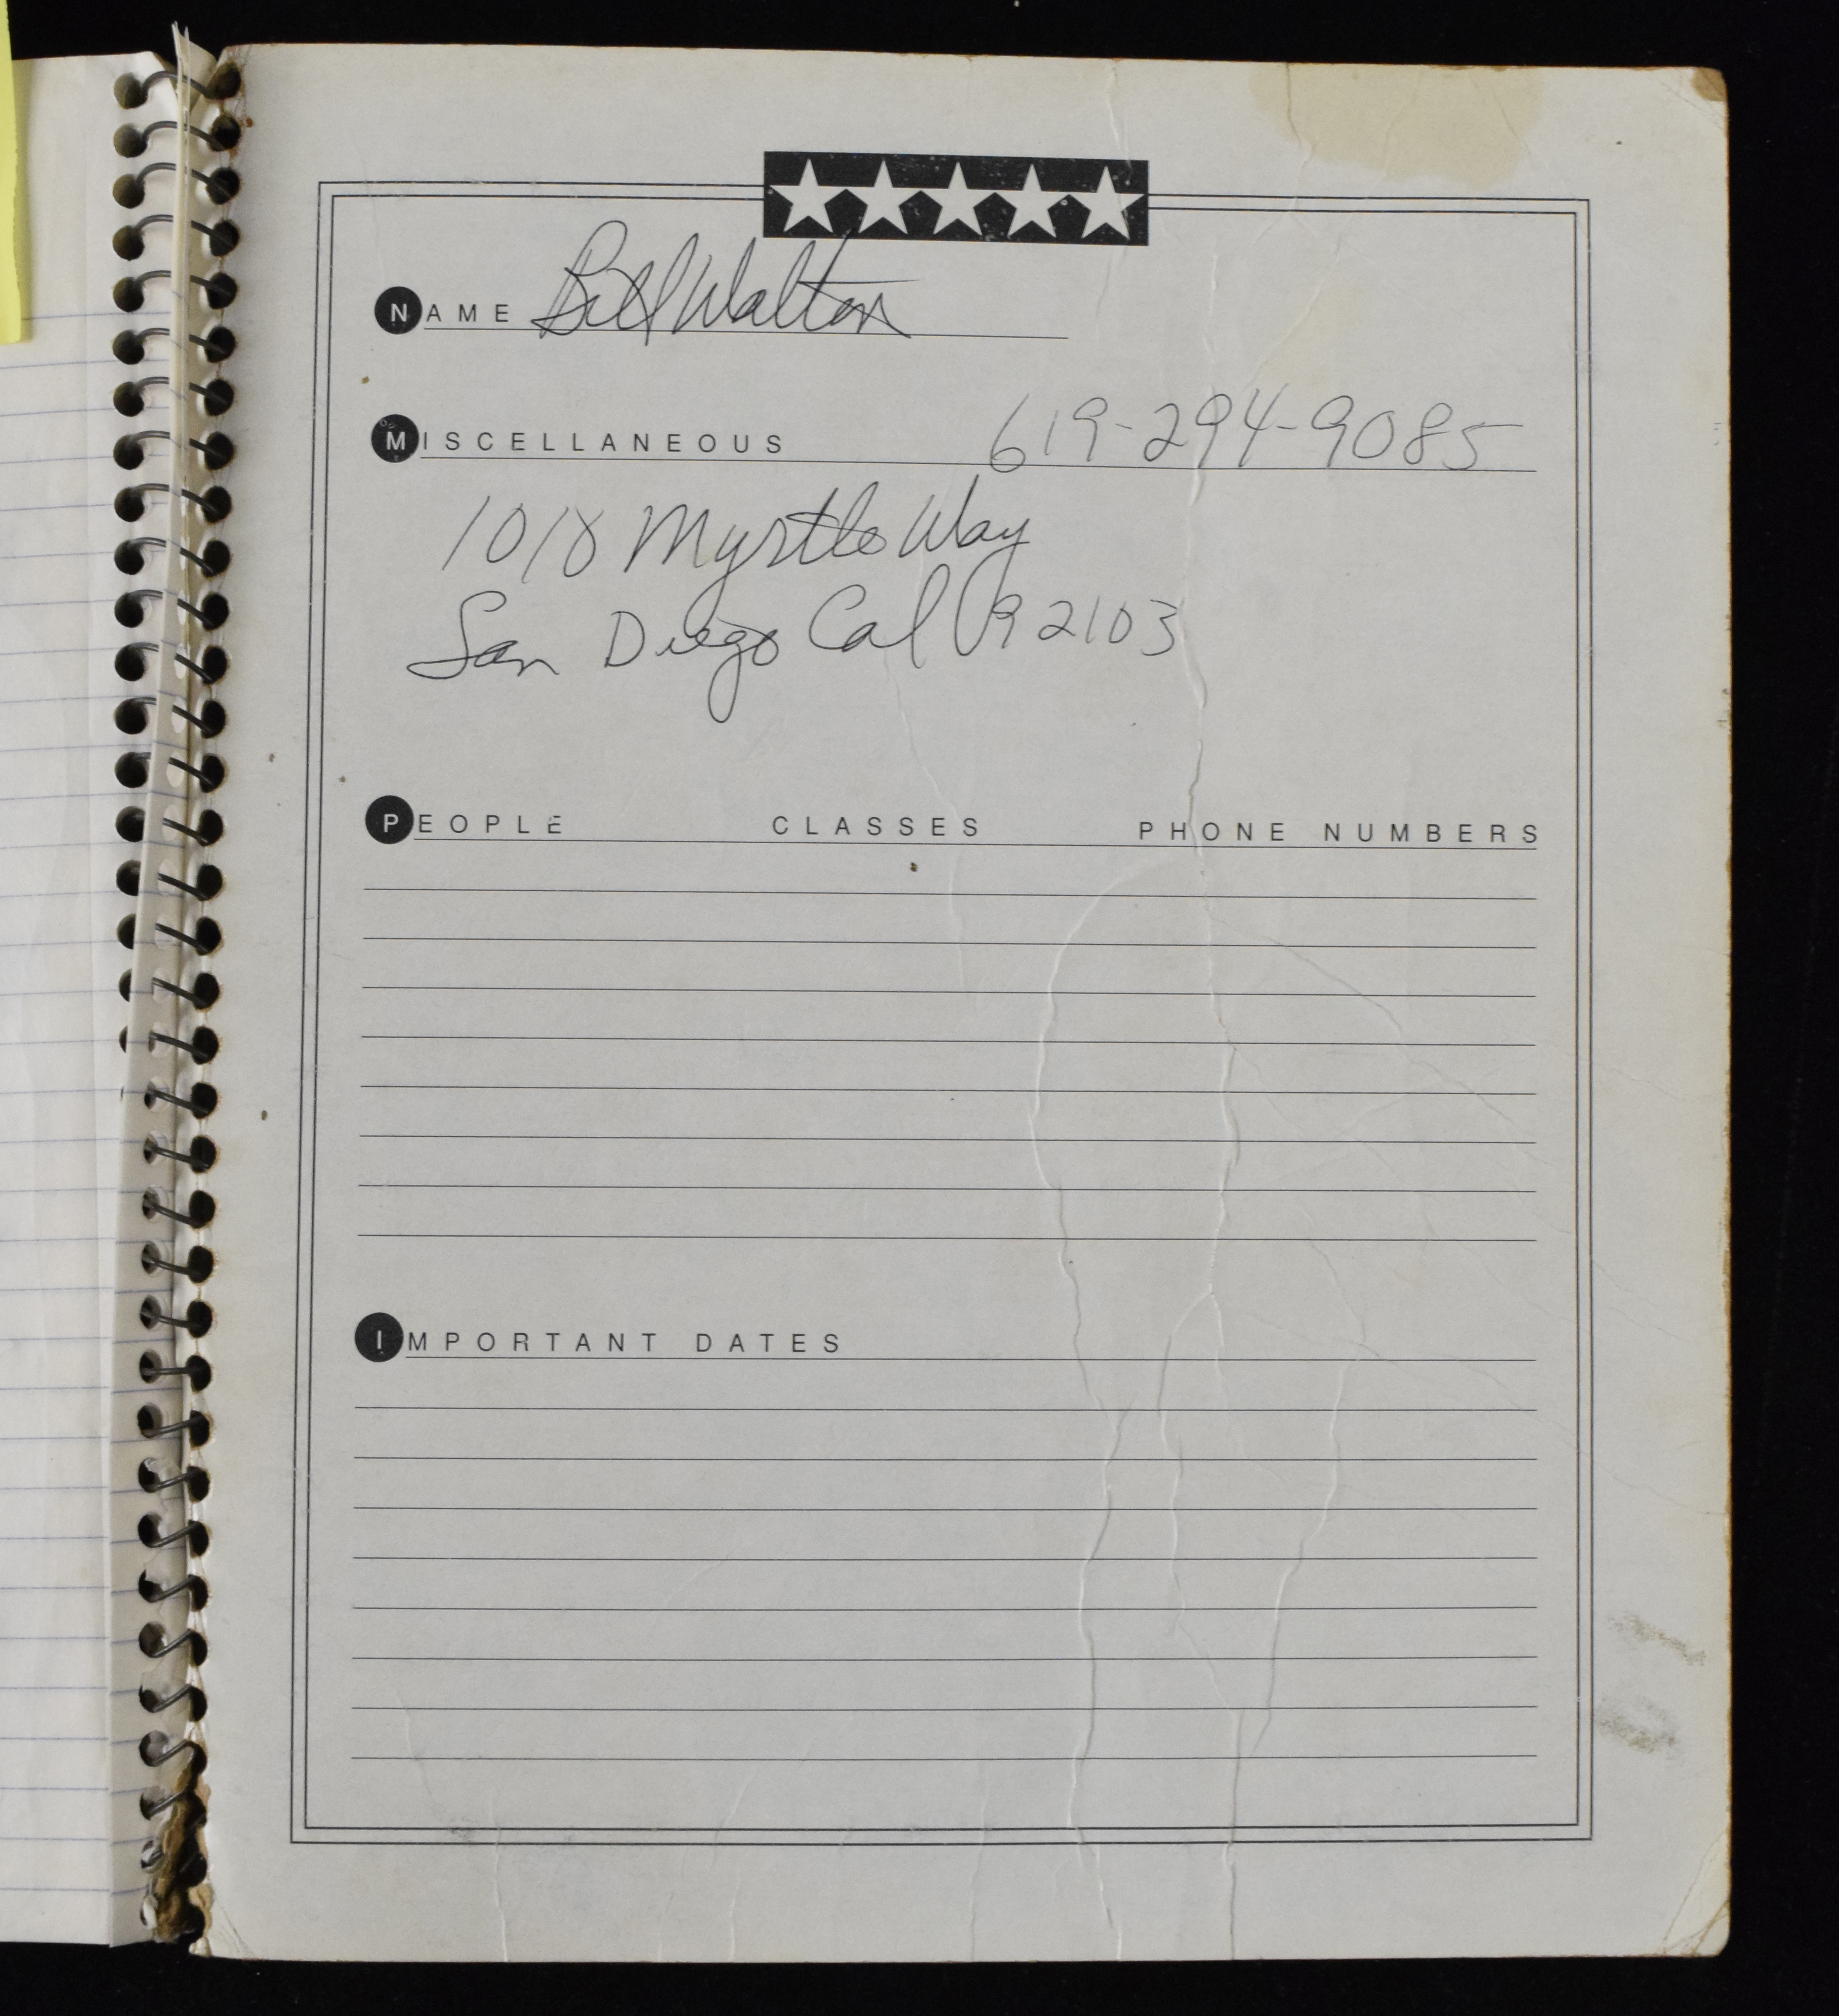 NAME Bill Walton
MISCELLANEOUS 619-294-9085
1010 Myrtle Way
San Diego Cal 92103
PEOPLE CLASSES PHONE NUMBERS
IMPORTANT DATES